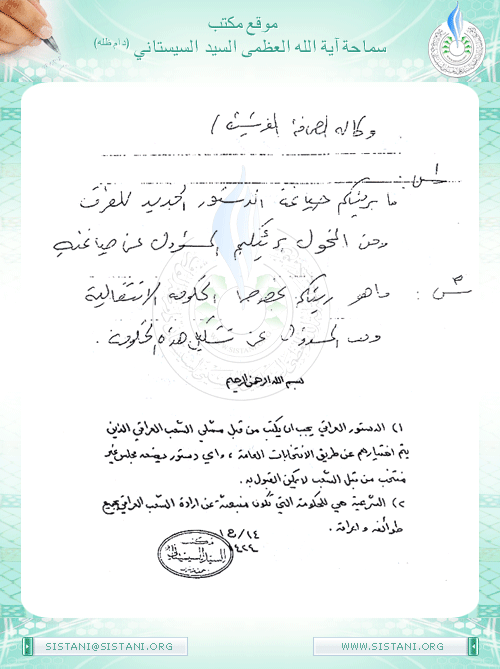 موقع مكتب
سماحة آية الله العظمى السيد السيستاني (دام ظله)
وكاله الصحافة الفرنسية /
ما برئيكم صياغة الدستور الجديد للعراق
ومن المخول برئيكم المسؤول عن صياغته
س : وما هو رئيكم بخصوص الحكومة الانتقالية
ومن المسؤول عن تشكيل هذه الحكومة.
بسم الله الرحمن الرحيم
١) الدستور العراقي يجب ان يكتب من قبل ممثلي الشعب العراقي الذين
يتم اختيارهم عن طريق الانتخابات العامة ، واي دستور يضعه مجلس غير
منتخب من قبل الشعب لا يمكن القبول به.
٢) الشرعية هي للحكومة التي تكون منبعثة عن ارادة الشعب العراقي بجميع
طوائفه واعراقه .
مكتب
السيد السيستاني
SISTANI@SISTANI.ORG
WWW.SISTANI.ORG